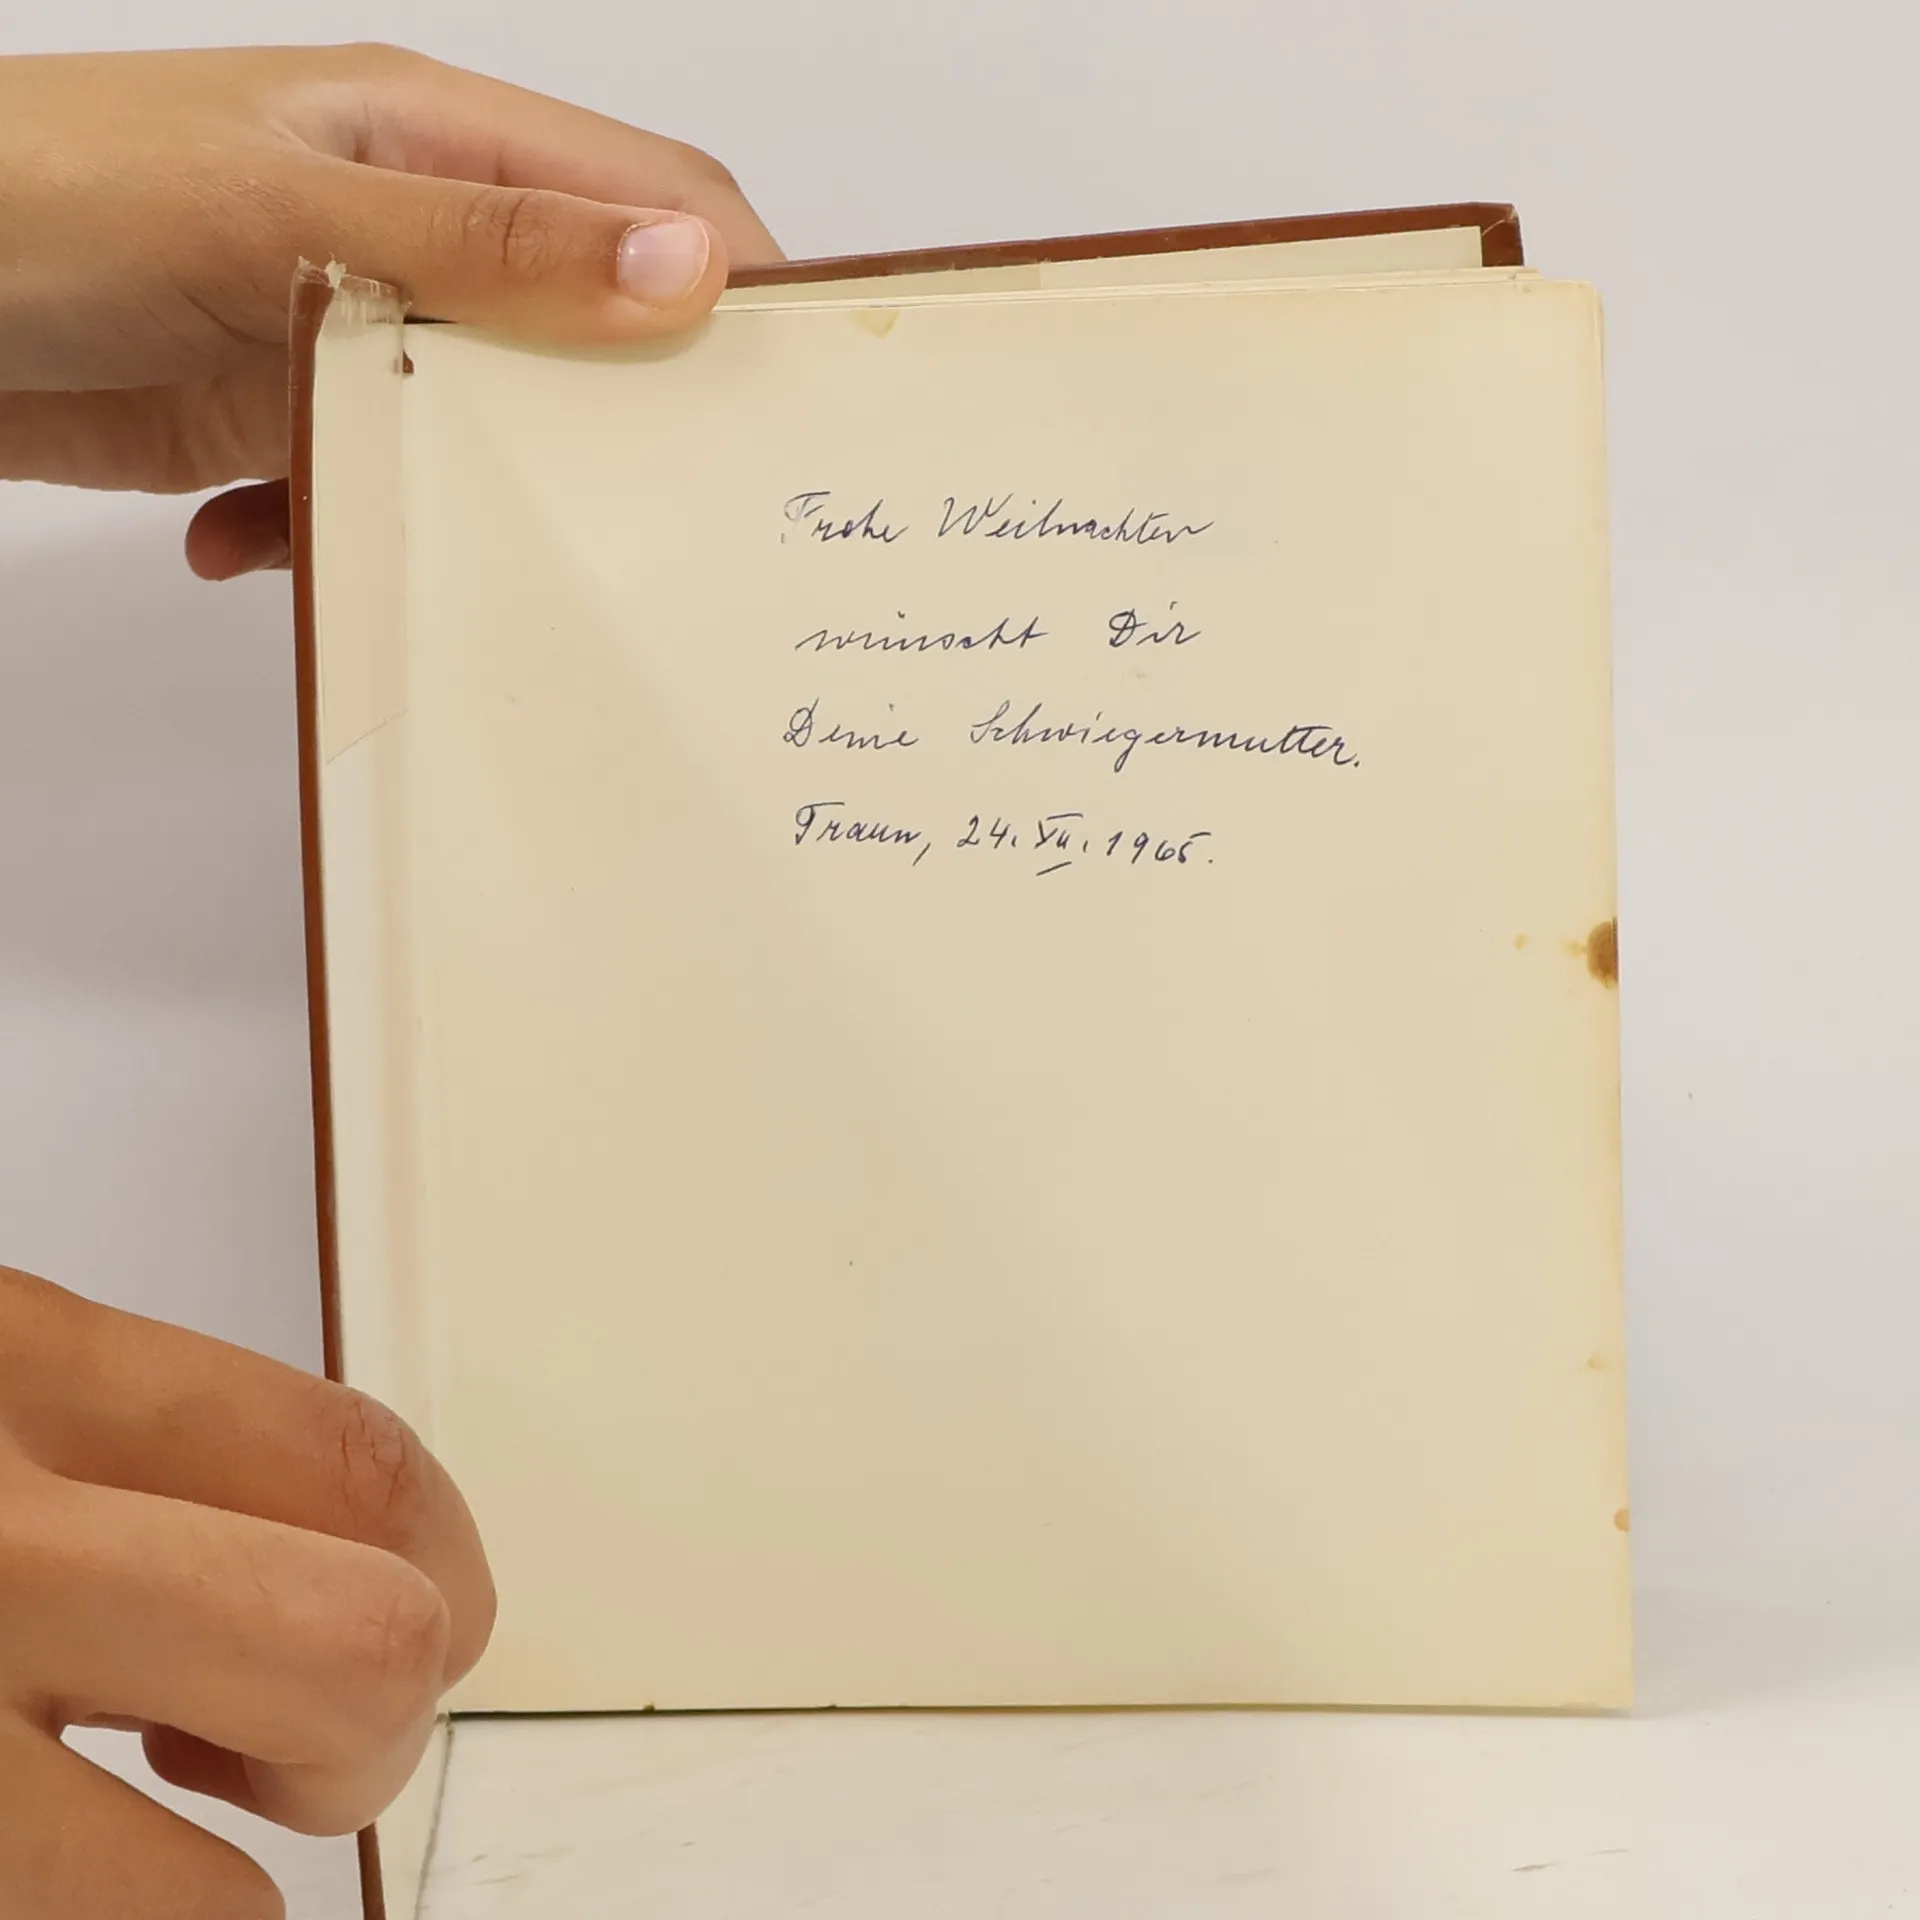 Frohe Weihnachten
wünscht Dir
Deine Schwiegermutter.
Traun, 24. XII. 1965.